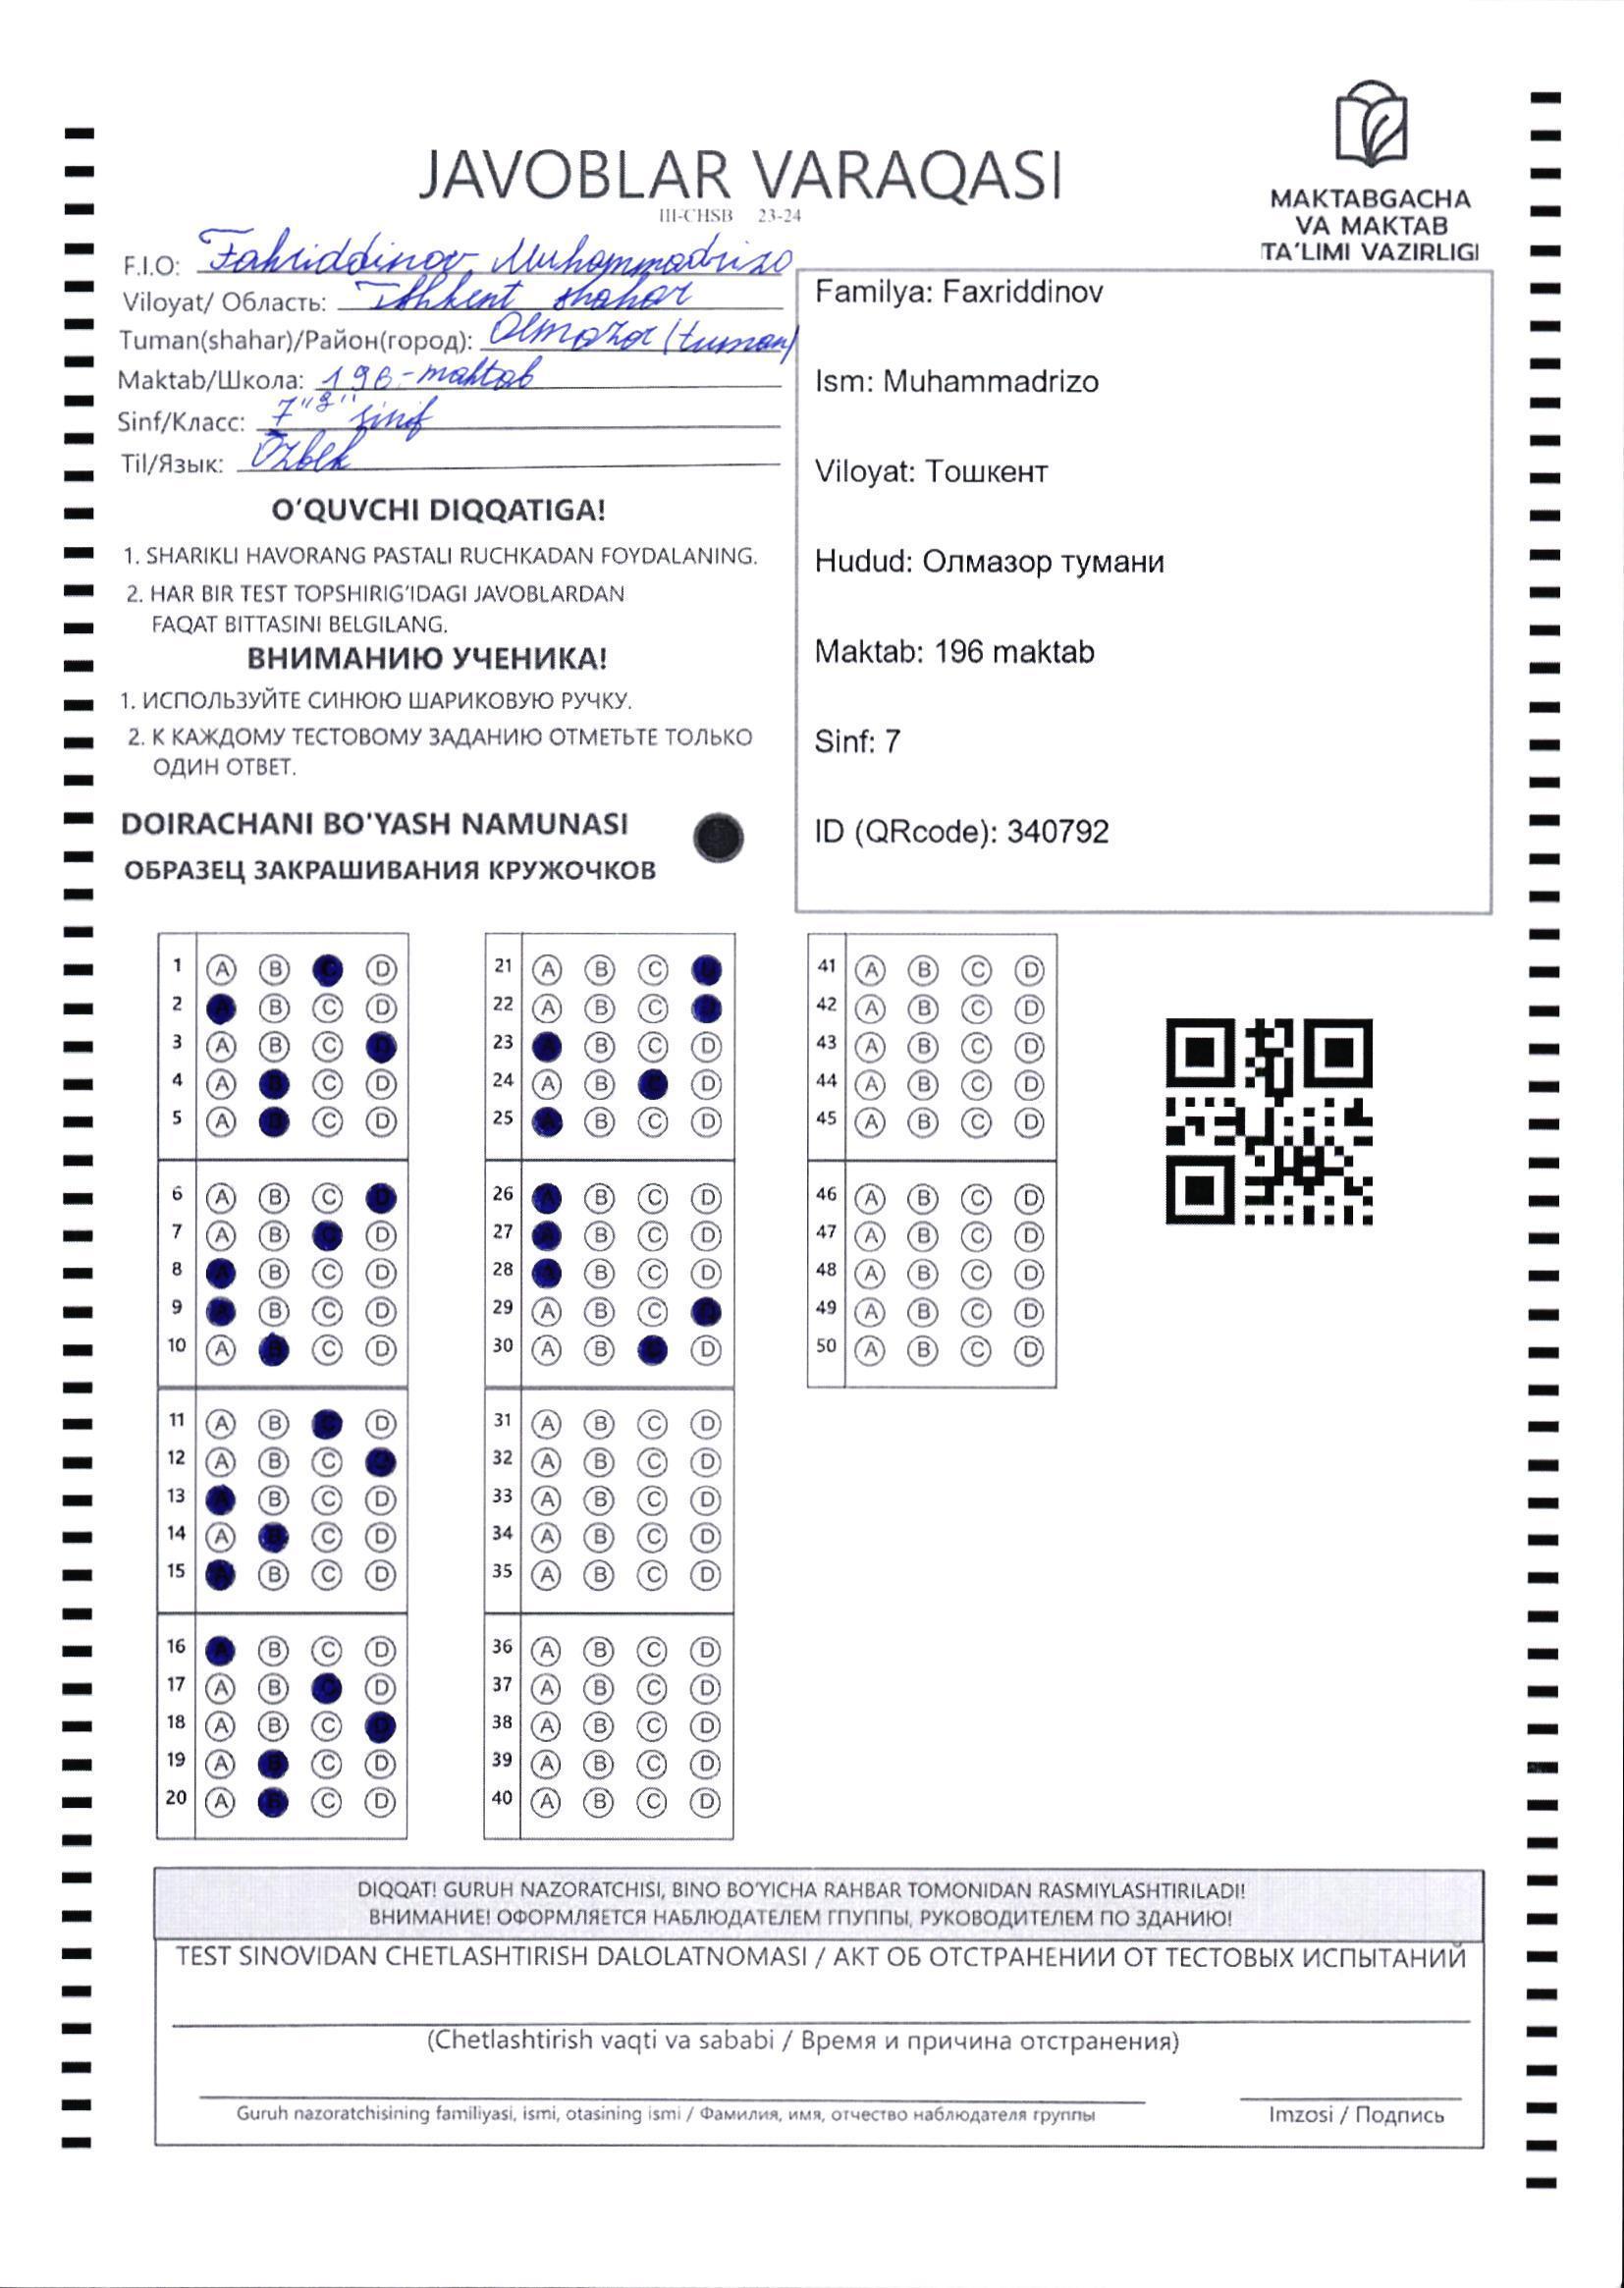 JAVOBLAR VARAQASI
III-CHSB 23-24
MAKTABGACHA
VA MAKTAB
TA'LIMI VAZIRLIGI
F.I.O: Fahriddinov Muhammadrizo
Viloyat/ Область: Toshkent shahar
Tuman(shahar)/Район(город): Olmazor (tuman)
Maktab/Школа: 196-maktab
Sinf/Класс: 7 "З" sinif
Til/Язык: Ozbek
O'QUVCHI DIQQATIGA!
1. SHARIKLI HAVORANG PASTALI RUCHKADAN FOYDALANING.
2. HAR BIR TEST TOPSHIRIG'IDAGI JAVOBLARDAN
FAQAT BITTASINI BELGILANG.
ВНИМАНИЮ УЧЕНИКА!
1. ИСПОЛЬЗУЙТЕ СИНЮЮ ШАРИКОВУЮ РУЧКУ.
2. К КАЖДОМУ ТЕСТОВОМУ ЗАДАНИЮ ОТМЕТЬТЕ ТОЛЬКО
ОДИН ОТВЕТ.
DOIRACHANI BO'YASH NAMUNASI
ОБРАЗЕЦ ЗАКРАШИВАНИЯ КРУЖОЧКОВ
Familya: Faxriddinov
Ism: Muhammadrizo
Viloyat: Тошкент
Hudud: Олмазор тумани
Maktab: 196 maktab
Sinf: 7
ID (QRcode): 340792
1 A B C D
2 A B C D
3 A B C D
4 A B C D
5 A B C D
6 A B C D
7 A B C D
8 A B C D
9 A B C D
10 A B C D
11 A B C D
12 A B C D
13 A B C D
14 A B C D
15 A B C D
16 A B C D
17 A B C D
18 A B C D
19 A B C D
20 A B C D
21 A B C D
22 A B C D
23 A B C D
24 A B C D
25 A B C D
26 A B C D
27 A B C D
28 A B C D
29 A B C D
30 A B C D
31 A B C D
32 A B C D
33 A B C D
34 A B C D
35 A B C D
36 A B C D
37 A B C D
38 A B C D
39 A B C D
40 A B C D
41 A B C D
42 A B C D
43 A B C D
44 A B C D
45 A B C D
46 A B C D
47 A B C D
48 A B C D
49 A B C D
50 A B C D
DIQQAT! GURUH NAZORATCHISI, BINO BO'YICHA RAHBAR TOMONIDAN RASMIYLASHTIRILADI!
ВНИМАНИЕ! ОФОРМЛЯЕТСЯ НАБЛЮДАТЕЛЕМ ГПУППЫ, РУКОВОДИТЕЛЕМ ПО ЗДАНИЮ!
TEST SINOVIDAN CHETLASHTIRISH DALOLATNOMASI / АКТ ОБ ОТСТРАНЕНИИ ОТ ТЕСТОВЫХ ИСПЫТАНИЙ
(Chetlashtirish vaqti va sababi / Время и причина отстранения)
Guruh nazoratchisining familiyasi, ismi, otasining ismi / Фамилия, имя, отчество наблюдателя группы
Imzosi / Подпись